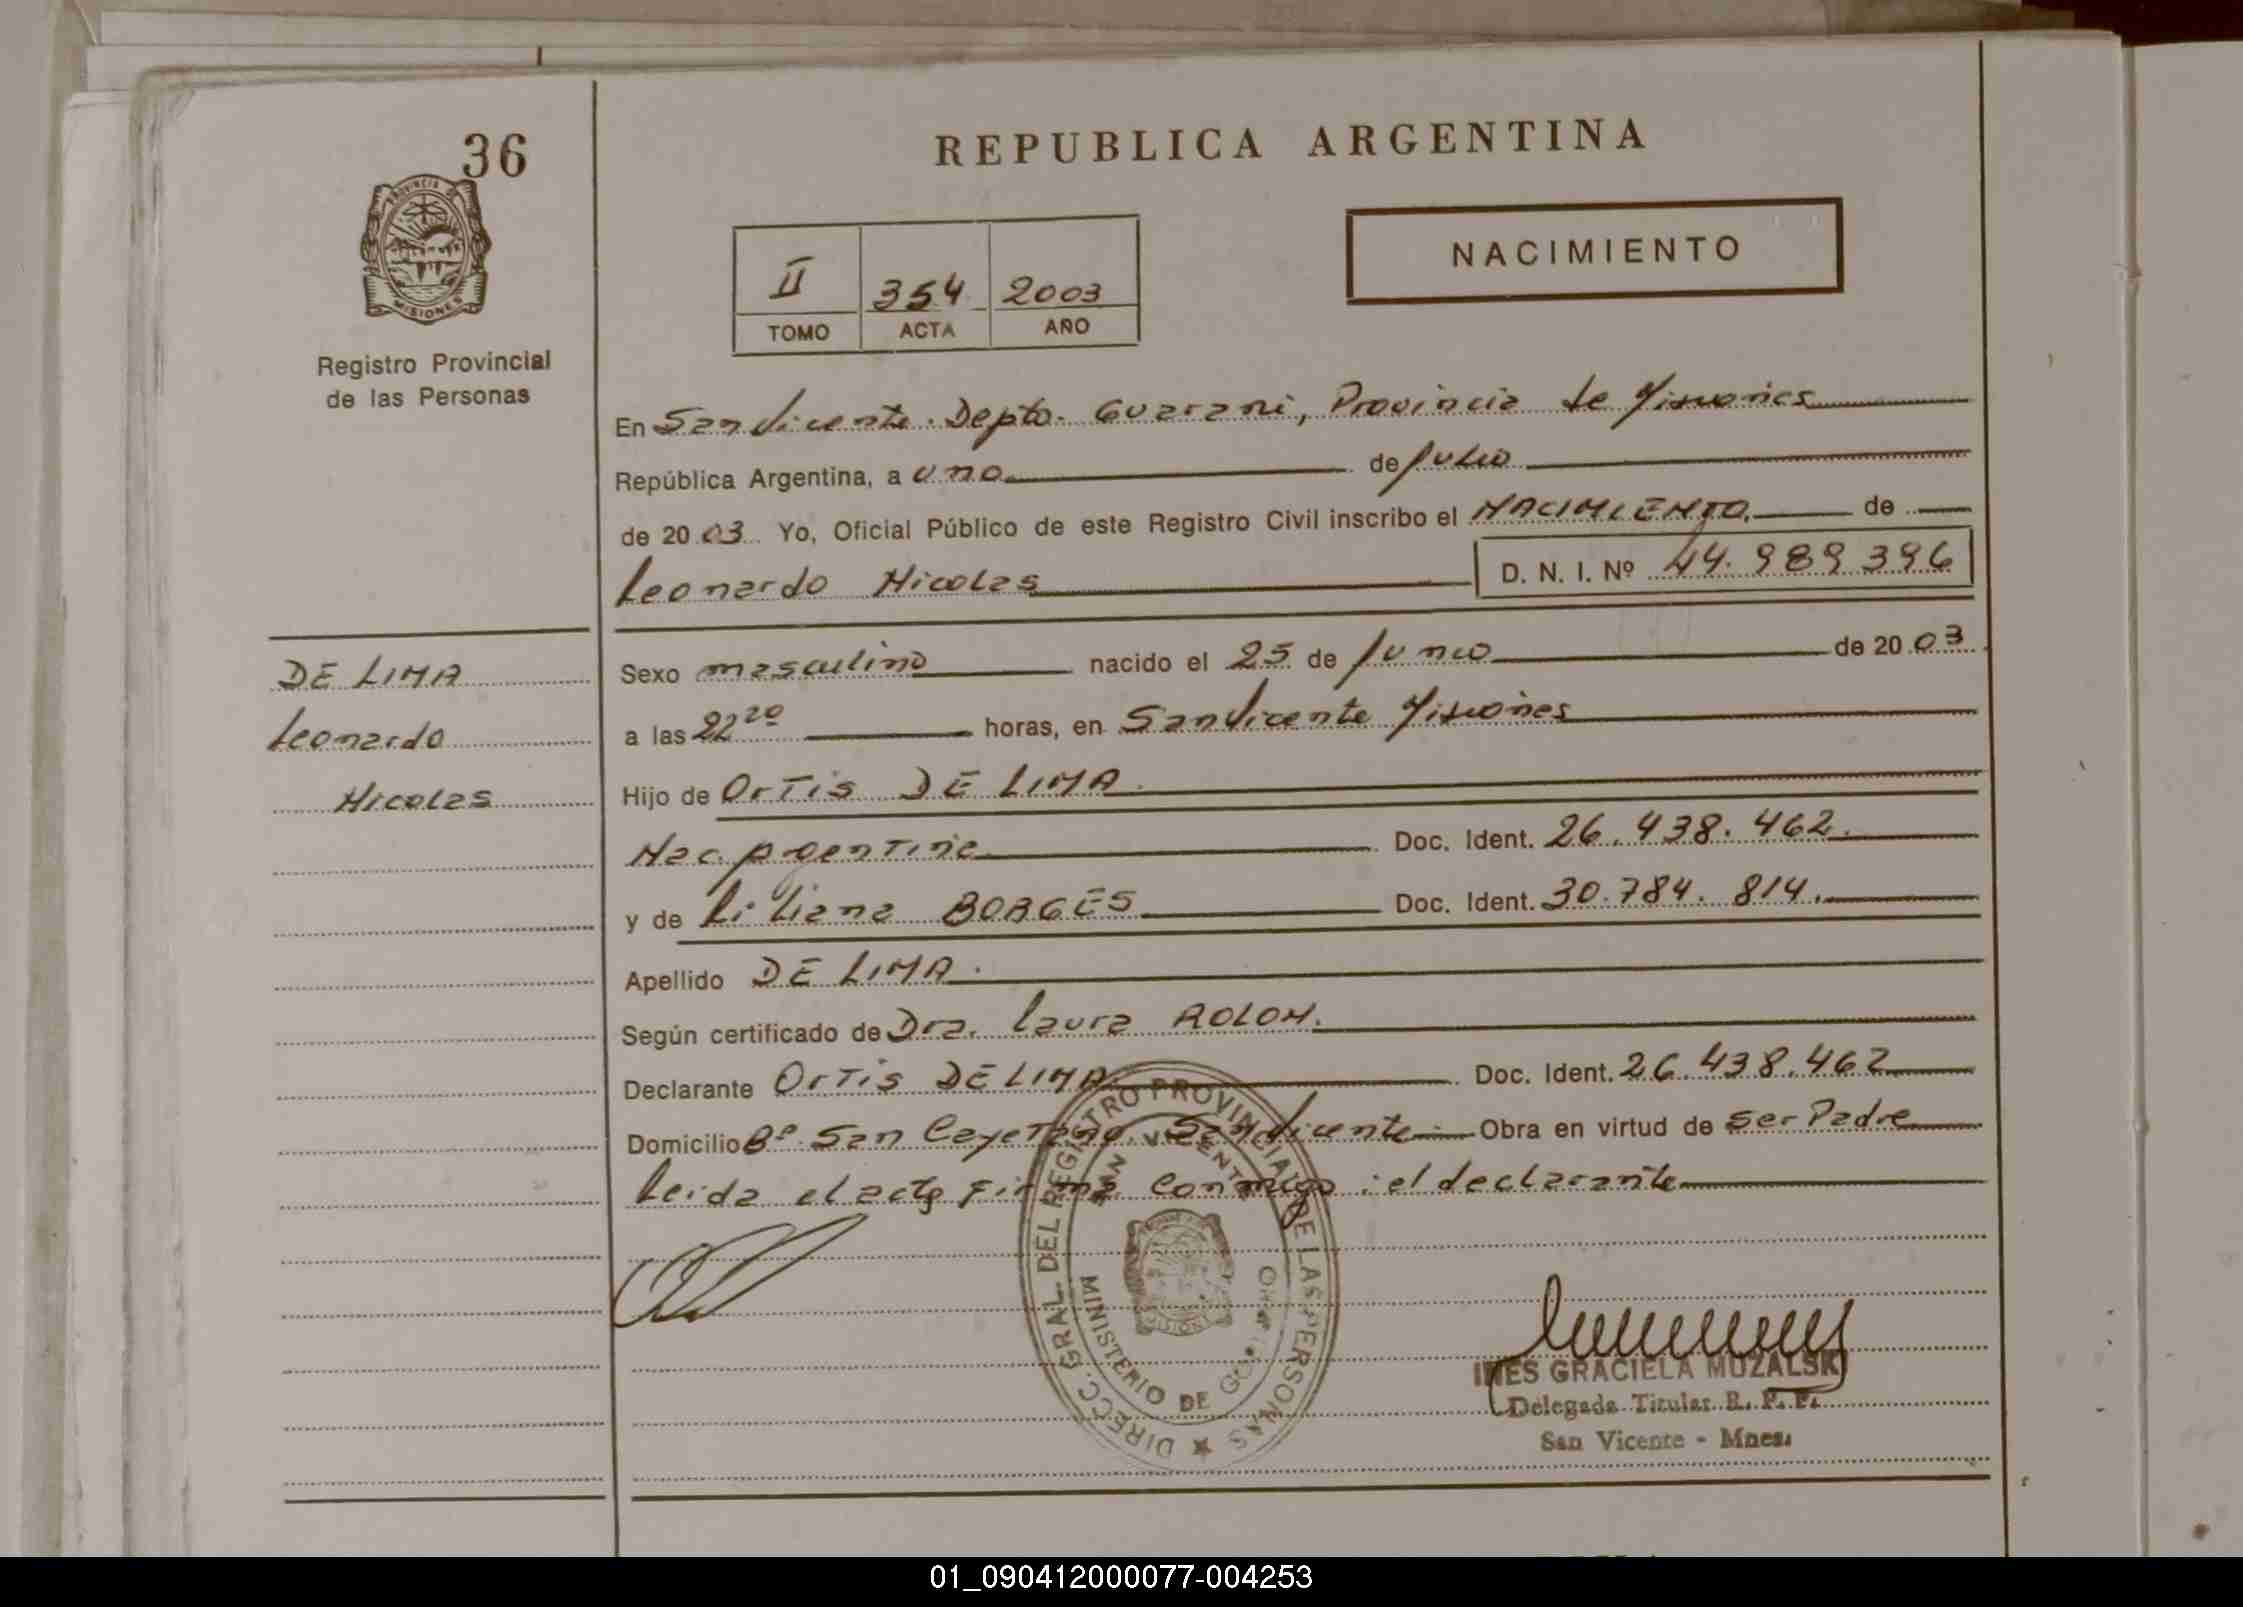 36
PROVINCIA DE
MISIONES
Registro Provincial
de las Personas
REPUBLICA ARGENTINA
II 354 2003
TOMO ACTA AÑO
NACIMIENTO
En San Vicente. Depto. Guarani, Provincia de Misiones
República Argentina, a uno de Julio
de 2003 Yo, Oficial Público de este Registro Civil inscribo el NACIMIENTO de
Leonardo Nicolas D. N. I. Nº 44.989.396
DE LIMA
Leonardo
Nicolas
Sexo masculino nacido el 25 de Junio de 2003
a las 22 20 horas, en San Vicente Misiones
Hijo de Ortis DE LIMA.
Nac. Argentina Doc. Ident. 26.438.462.
y de Liliana BORGES Doc. Ident. 30.784.814.
Apellido DE LIMA.
Según certificado de Dra. Laura ROLON.
Declarante Ortis DE LIMA Doc. Ident. 26.438.462
Domicilio Bº San Cayetano. San Vicente Obra en virtud de ser Padre
Leida el acta firma conmigo: el declarante
DIRECC. GRAL. DEL REGISTRO PROVINCIAL DE LAS PERSONAS
SAN VICENTE
MINISTERIO DE GOBIERNO
MISIONES
INES GRACIELA MUZALSKI
Delegada Titular R. P. P.
San Vicente - Mnes.
01_090412000077-004253